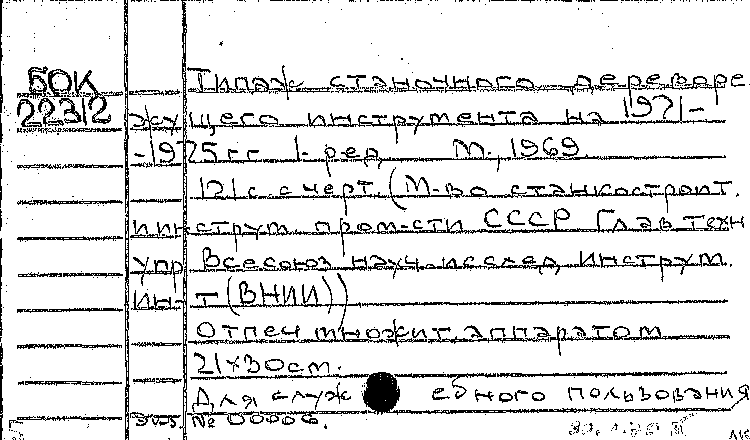 БОК
22312
Типаж станочного дереворе
жущего инструмента на 1971-
-1975гг 1-ред М., 1969
121с. с черт. (М-во станкостроит.
и инструм. пром-сти СССР Глав техн
упр Всесоюз науч.-исслед. инструм.
ин-т (ВНИИ))
Отпеч множит. аппаратом
21х30см.
Для служебного пользования
Экз. № 00006.